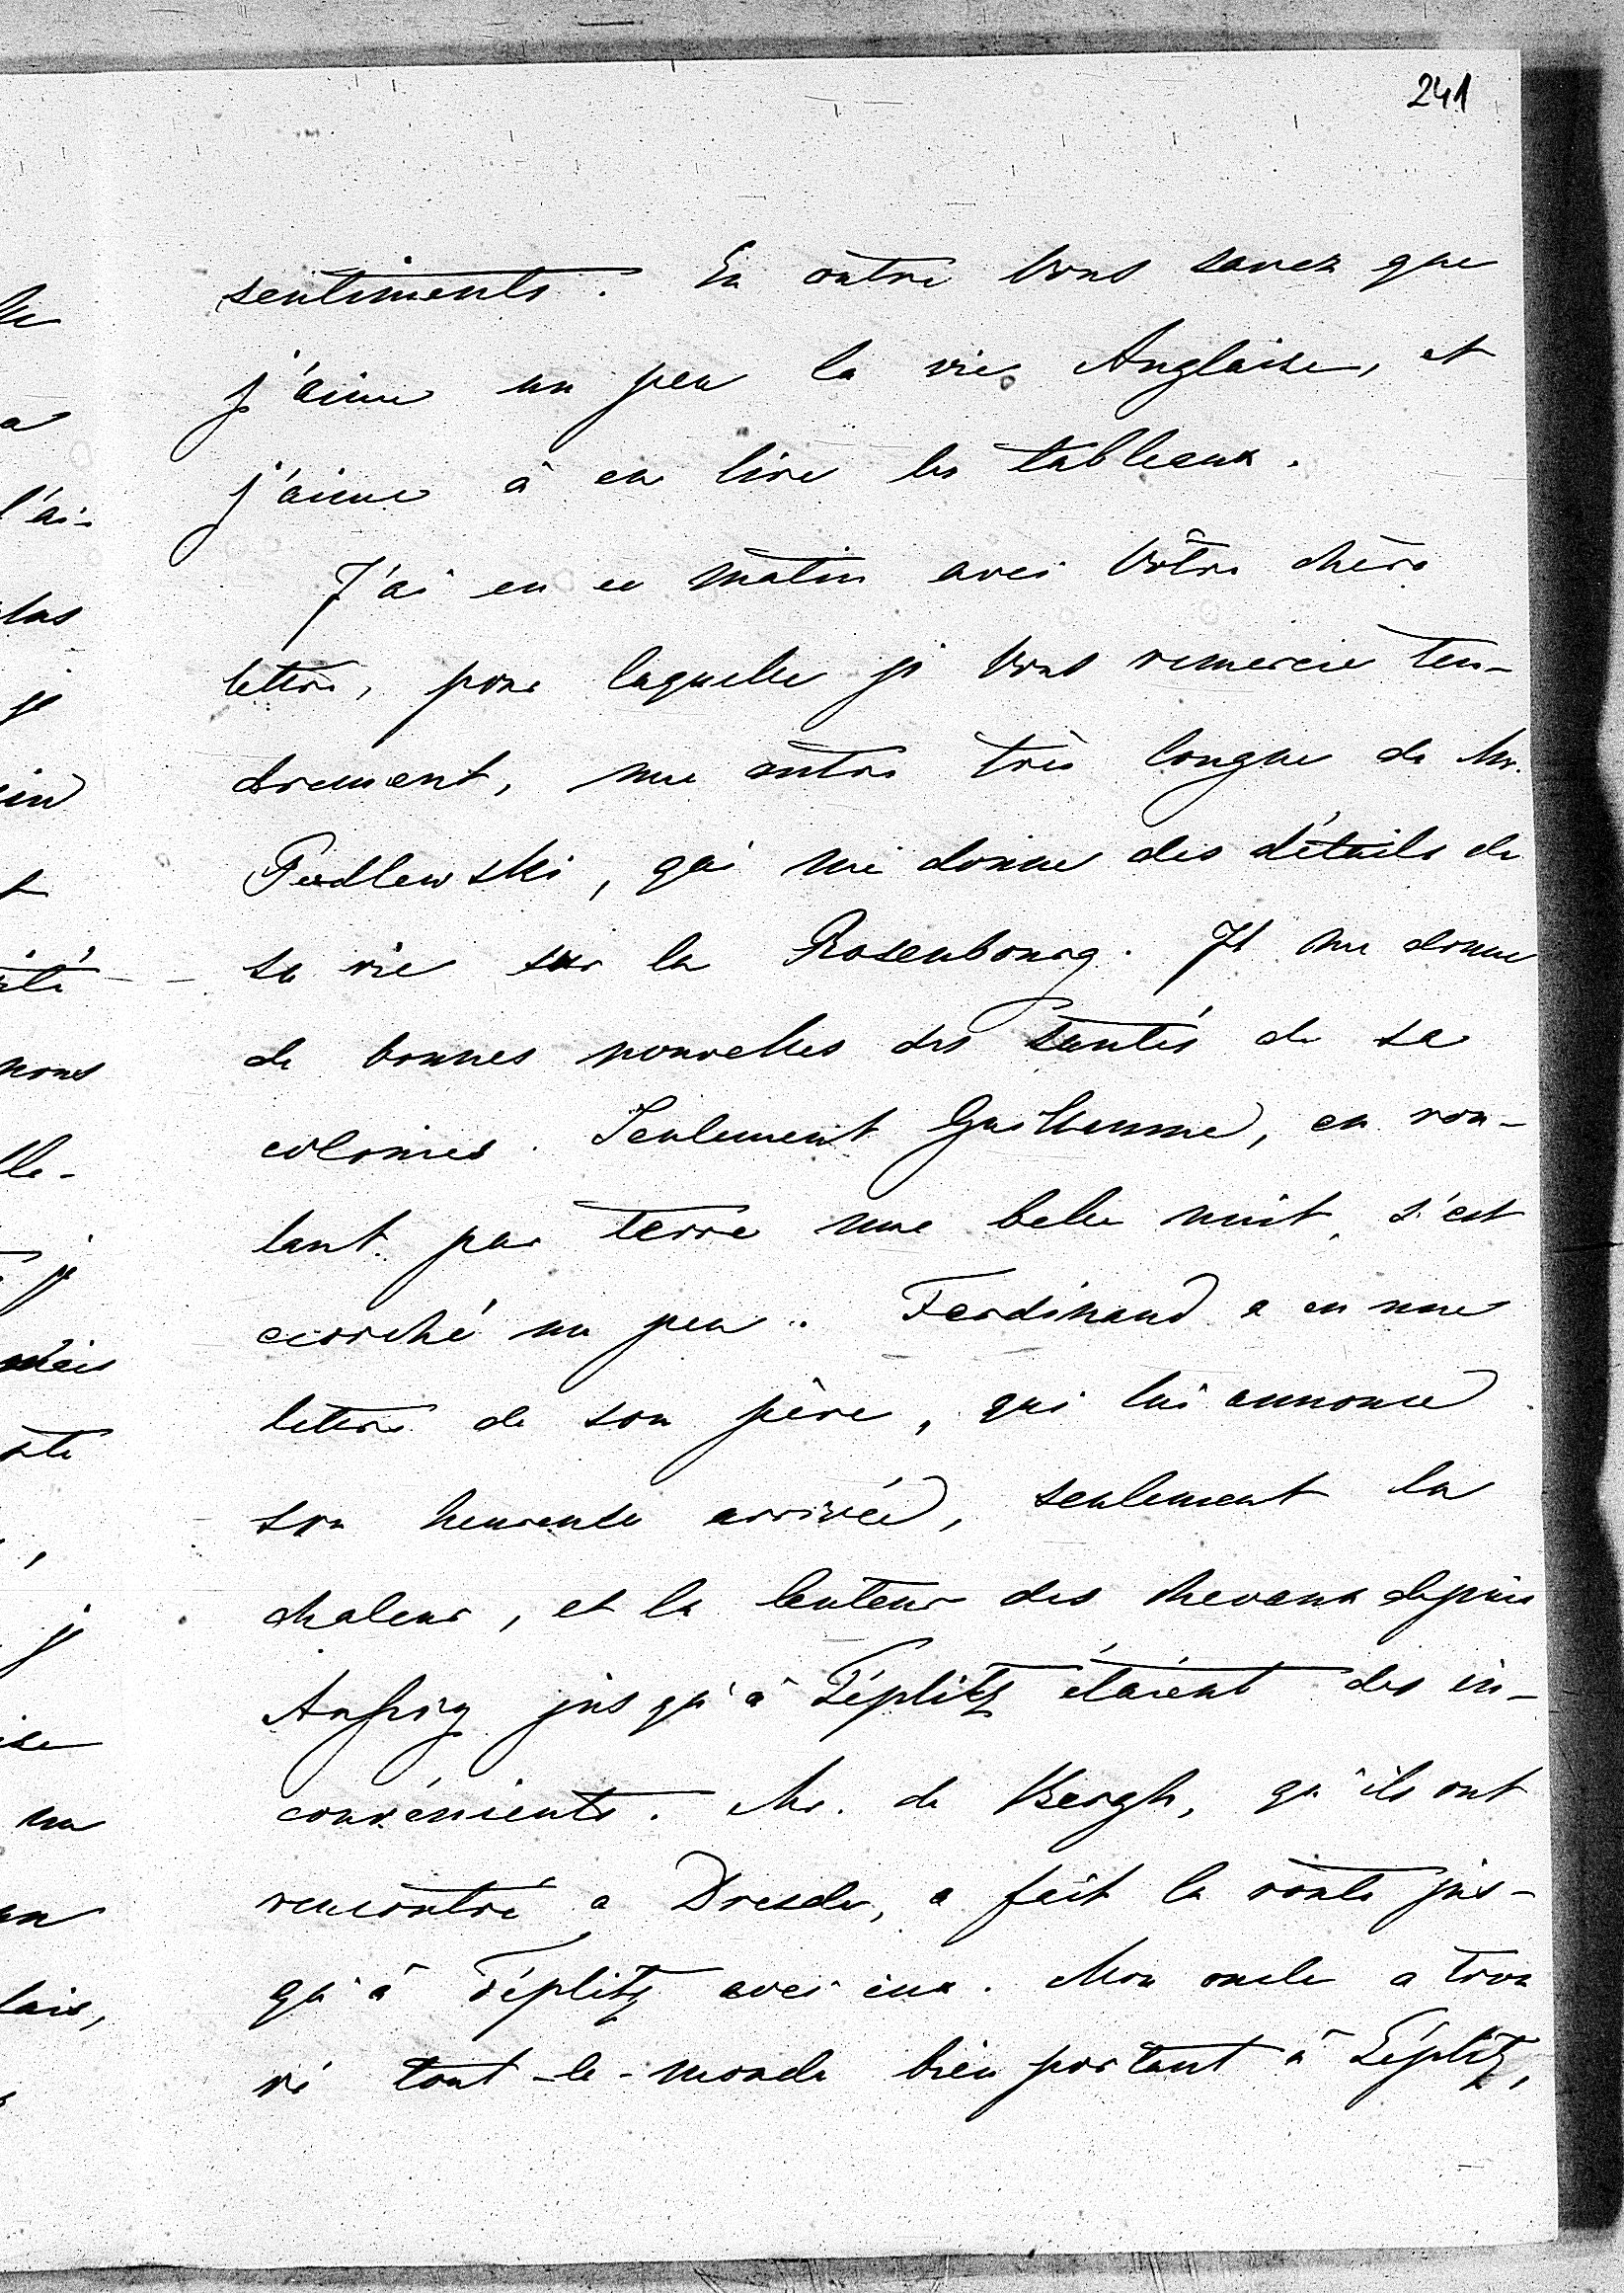 241
sentiments. En outre Vous savez que
j'aime un peu la vie Anglaise, et
j'aime à en lire les tableaux.
J'ai eu ce matin avec Vôtre chère
lettre, pour laquelle je Vous remercie ten-
drement, une autre très longue de Mr.
Podlewski, qui me donne des détails de
sa vie sur la Rosenbourg. Il me donne
de bonnes nouvelles des santés de sa
colonies. Seulement Guillaume, en rou-
lant par terre une belle nuit, s'est
écorché un peu. Ferdinand a eu une
lettre de son père, qui lui annonce
son heureuse arrivée, seulement la
chaleur, et la lenteur des chevaux depuis
jusqu'à Téplitz étaient des in-
convénients. Mr. de Bergh, qu'ils ont
rencontré a Dresde, a fait la route jus-
qu'à Téplitz avec eux. Mon oncle a trou
vé tout-le-monde bien portant à Téplitz,